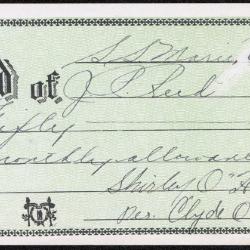 S. S. Marie,
d of J. P. Reed
Fifty
monthly allowan
Shirley O'H
per. Clyde O